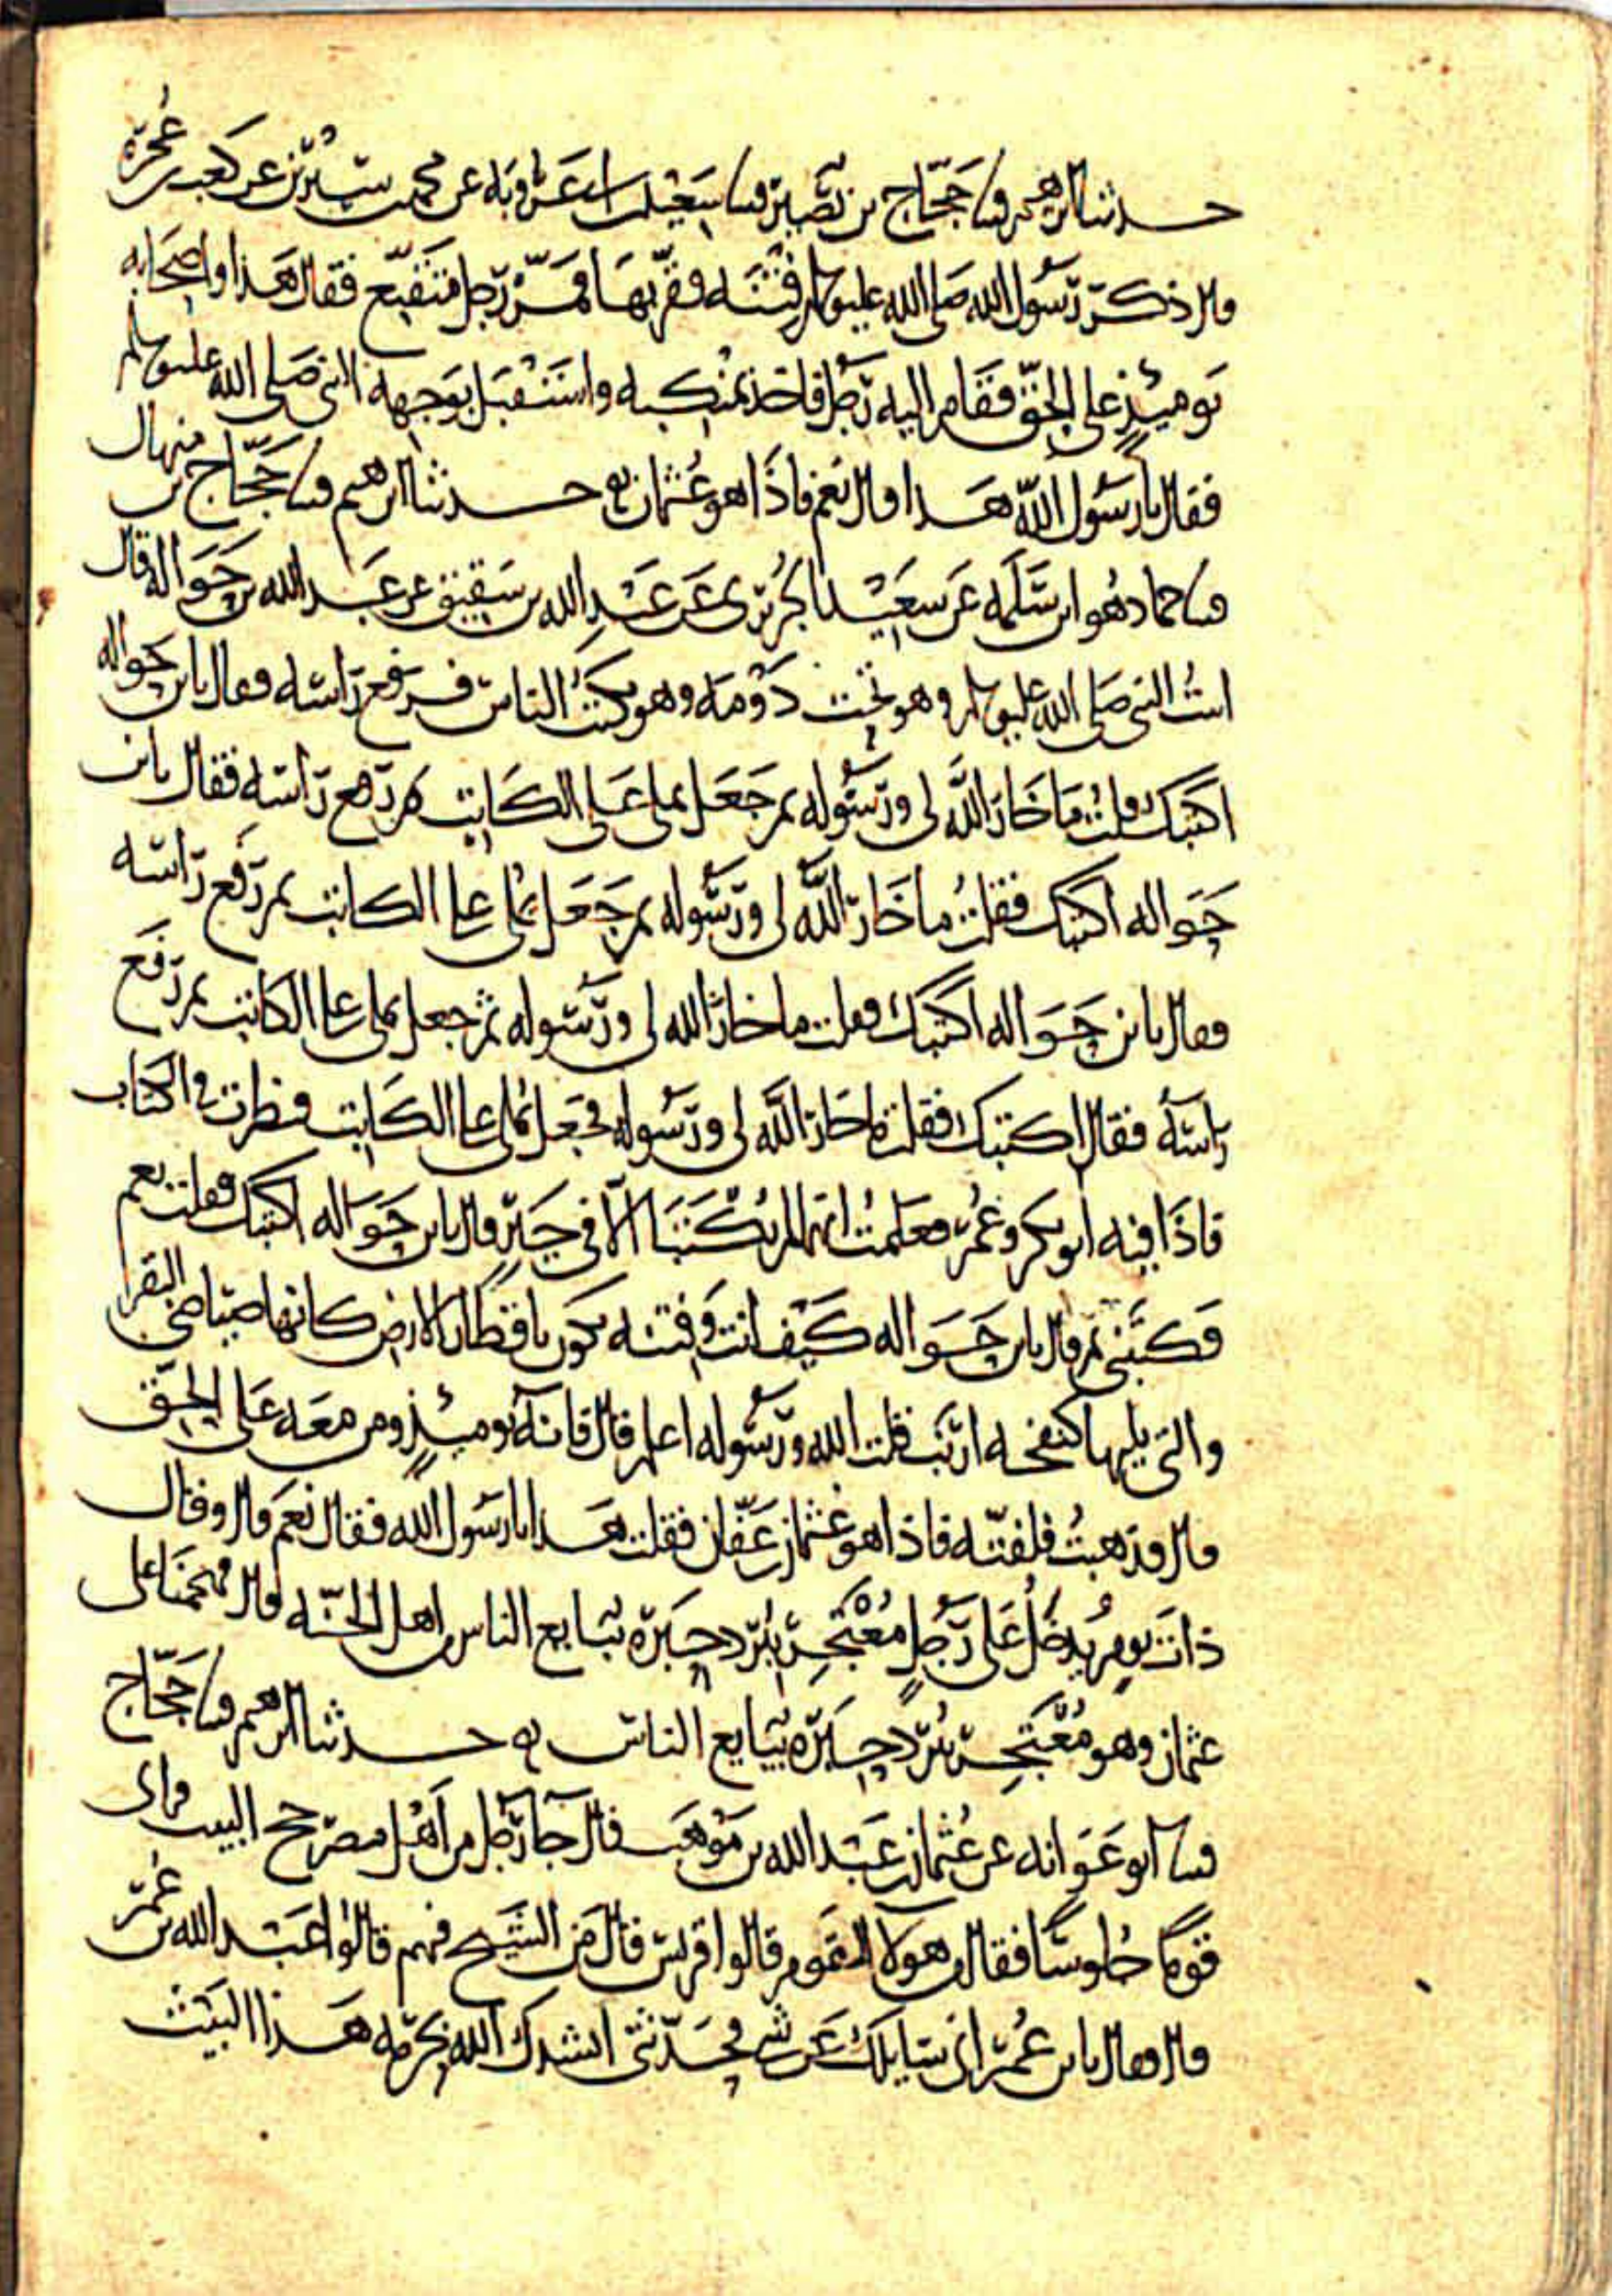 حدثنا ابرهيم قثنا حجّاج بن نُصَير قثنا سعيد بن ابي عَرُوبَه عن محمد بن سيرين عن كعب بن عُجْرَة
قال ذكر رسول الله صَلى الله عليه وسلم فِتْنَه فقرّبها فمَرّ رَجل مُتَقَنِّع فقال هذا واصحابه
يَومئذٍ على الحقّ فقام اليه رَجل فاخذ بمنكبيه واستقبل بوجهه النبي صَلى الله عليه وسلم
فقال يا رسول الله هذا قال نعم فاذا هو عُثمان حدثنا ابرهيم قثنا حَجّاج بن منهال
قثنا حماد هُو ابن سَلَمه عَن سعَيْد الجُرَيْري عَن عَبْدِ الله بن شقيق عن عَبد الله بن حَوَاله قال
اتيتُ النبي صَلى الله عليه وسلم وهو تحت دَوْمَه وهو يكتبُ الناس فرفع رَاسَه فقال يابن حَواله
اكتبك قلت مَا خَارَ اللهُ لي ورَسُوله ثم جَعَل يملي عَلى الكَاتِب ثم رفع رَاسَه فقال يابن
حَوَاله اكتبك فقلتُ ما خَارَ اللهُ لي ورَسُوله ثم جَعَل يُملي على الكاتب ثم رَفع رَاسَه
فقال يابن حَوَاله اكتبك فقلت ما خارَ الله لي ورَسُوله ثم جعل يملي على الكاتب ثم رَفَع
رَاسَهُ فقال اكتبك فقلت ما خَارَ الله لي ورَسُوله فجَعَل يُملي على الكَاتِب فنظرت في الكتاب
فاذَا فيه ابو بكر وعُمَر فعَلمتُ انهما لم يُكْتَبَا الّا في خَيرٍ قال يابن حَوَاله اكتبك فقلت نعم
فكتبَني ثم قال يابن حَوَاله كَيْفَ انت وَفِتنه تكون باقطار الارض كانها صَيَاصي البقر
والتي يليها كنفخه ارنَب قلت الله ورَسُوله اعلم قال فانهُ يومئذٍ ومن معَه عَلى الحَقّ
قال فذهبتُ فلفتّه فاذا هو عُثمان بن عَفّان فقلت هَذا يا رَسُول الله فقال نَعَم قال وقال
ذات يومٍ يَدخُلُ عَلى رَجُلٍ مُعْتَجِر ببُرْد حِبَرَة يُبَايع الناس من اهل الجنّه قال فهجمنَا على
عثمان وهو مُعْتَجِر ببُرْد حِبَرَة يُبَايع الناس حدثنا ابرهيم قثنا حَجّاج
قثنا ابو عَوَانه عن عُثمان بن عَبْد الله بن مَوْهَب قال جَا رَجُل من اهْل مصر حج البيت فراى
قَومًا جُلوسًا فقال من هولا القوم قالوا قريش قال فمَن الشيخ فيهم قالوا عَبْد الله بن عُمَر
قال فقال يابن عُمَر اني سَايلك عَن شَي فحَدّثني انشدك الله بحُرمه هَذا البيت